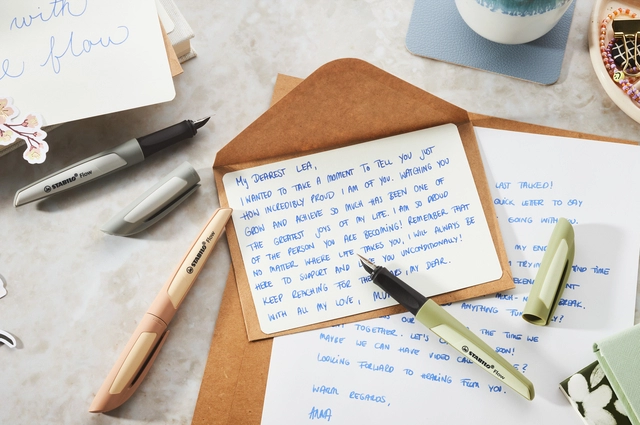 with
flow
My DEAREST LEA,
I WANTED TO TAKE A MOMENT TO TELL YOU JUST
HOW INCREDIBLY PROUD I AM OF YOU. WATCHING YOU
GROW AND ACHIEVE SO MUCH HAS BEEN ONE OF
THE GREATEST JOYS OF MY LIFE. I AM SO PROUD
OF THE PERSON YOU ARE BECOMING! REMEMBER THAT
NO MATTER WHERE LIFE TAKES YOU, I WILL ALWAYS BE
HERE TO SUPPORT AND YOU UNCONDITIONALLY!
KEEP REACHING FOR THE MY DEAR.
WITH ALL MY LOVE,
LAST TALKED!
QUICK LETTER TO SAY
GOING WITH
MY
TIME
BREAK.
TOGETHER. LET'S THE TIME WE
MAYBE WE CAN HAVE VIDEO SOON!
LOOKING FORWARD TO HEARING FROM YOU.
WARM REGARDS,
ANNA
STABILO flow
STABILO flow
STABILO flow